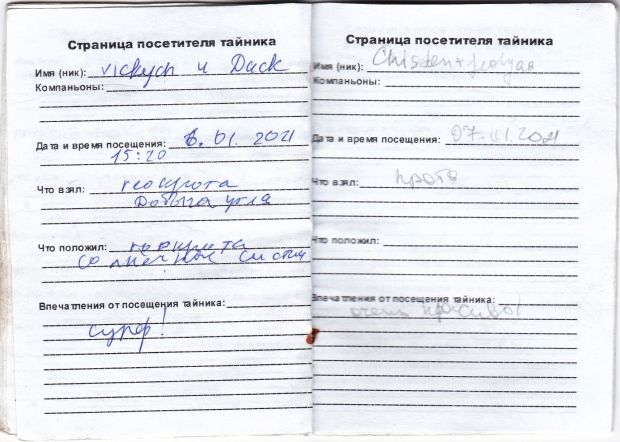 Страница посетителя тайника
Имя (ник): vickych и Duck
Компаньоны:
Дата и время посещения: 6.01.2021
15:20
Что взял: геокрота
Добыча угля
Что положил:
солнечной систем
Впечатления от посещения тайника:
супер!
Страница посетителя тайника
Имя (ник): Chisten +
Компаньоны:
Дата и время посещения: 07.01.2021
Что взял: крота
Что положил:
Впечатления от посещения тайника:
очень красиво!